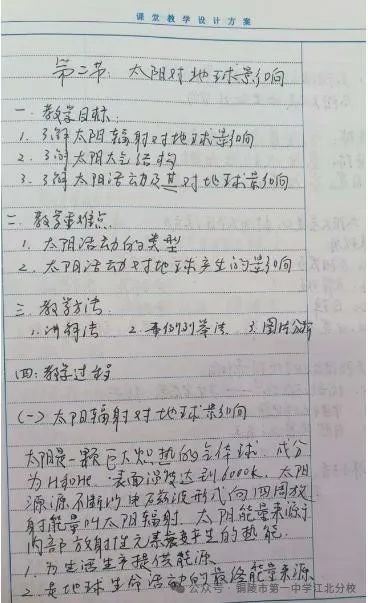 课堂教学设计方案
第二节：太阳对地球影响
一. 教学目标：
1. 了解太阳辐射对地球影响
2. 了解太阳大气结构
3. 了解太阳活动及其对地球影响
二. 教学重难点
1. 太阳活动的类型
2. 太阳活动对地球产生的影响
三. 教学方法：
1. 讲解法 2. 事例列举法 3. 图片分析
四: 教学过程
(一) 太阳辐射对地球影响
太阳是一颗巨大炽热的气体球. 成分
为H和He. 表面温度达到6000K. 太阳
源源不断以电磁波形式向四周放
射能量叫太阳辐射. 太阳能量来源于
内部放射性元素衰变产生的热能.
1. 为生活生产提供能源
2. 是地球生命活动的最终能量来源
公众号·铜陵市第一中学江北分校